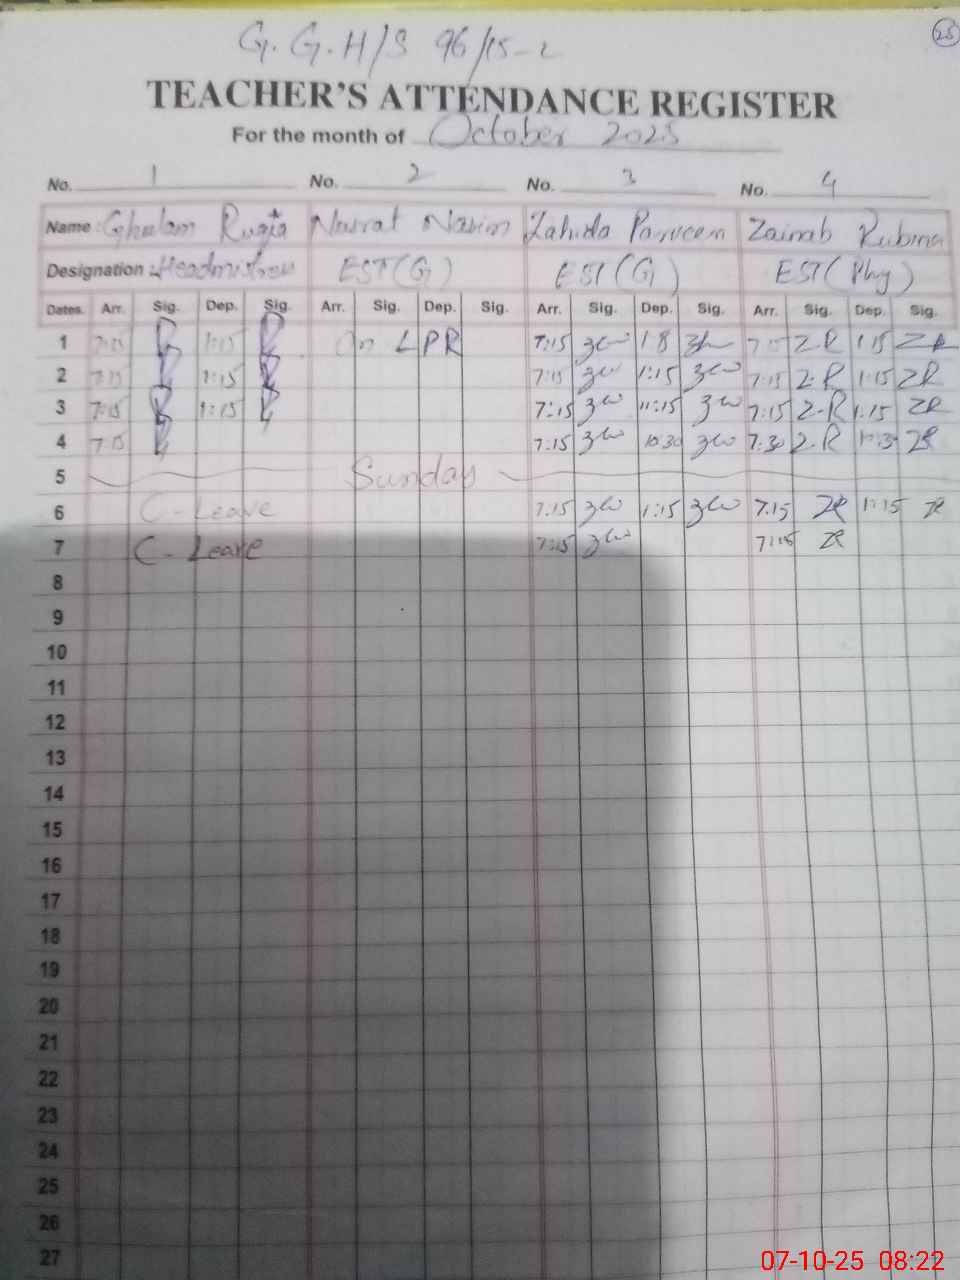 25
G.G.H/S 96/15-L
TEACHER'S ATTENDANCE REGISTER
For the month of October 2025
No. 1 No. 2 No. 3 No. 4
Name : Ghulam Nusrat Nasim Zahida Parveen Zainab Rubina
Designation : Headmistress EST(G) EST(G) EST(Phy)
Dates. Arr. Sig. Dep. Sig. Arr. Sig. Dep. Sig. Arr. Sig. Dep. Sig. Arr. Sig. Dep. Sig.
1 7:15 1:15 On LPR 7:15 1:8 7:15 Z.R 1:15 ZR
2 7:15 1:15 7:15 1:15 7:15 Z.R 1:15 ZR
3 7:15 1:15 7:15 11:15 7:15 Z.R 1:15 ZR
4 7:15 7:15 10:30 7:30 Z.R ZR
5 Sunday
6 C-Leave 7:15 1:15 7:15 ZR 1:15 ZR
7 C-Leave 7:15 7:15 ZR
8
9
10
11
12
13
14
15
16
17
18
19
20
21
22
23
24
25
26
27
07-10-25 08:22